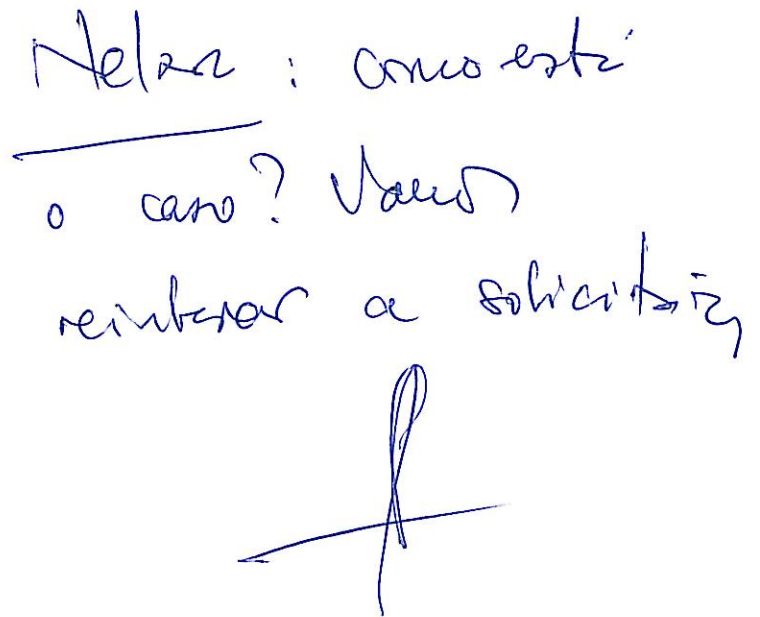 Nelson : como está
o caso? Vamos
reiterar a solicitação